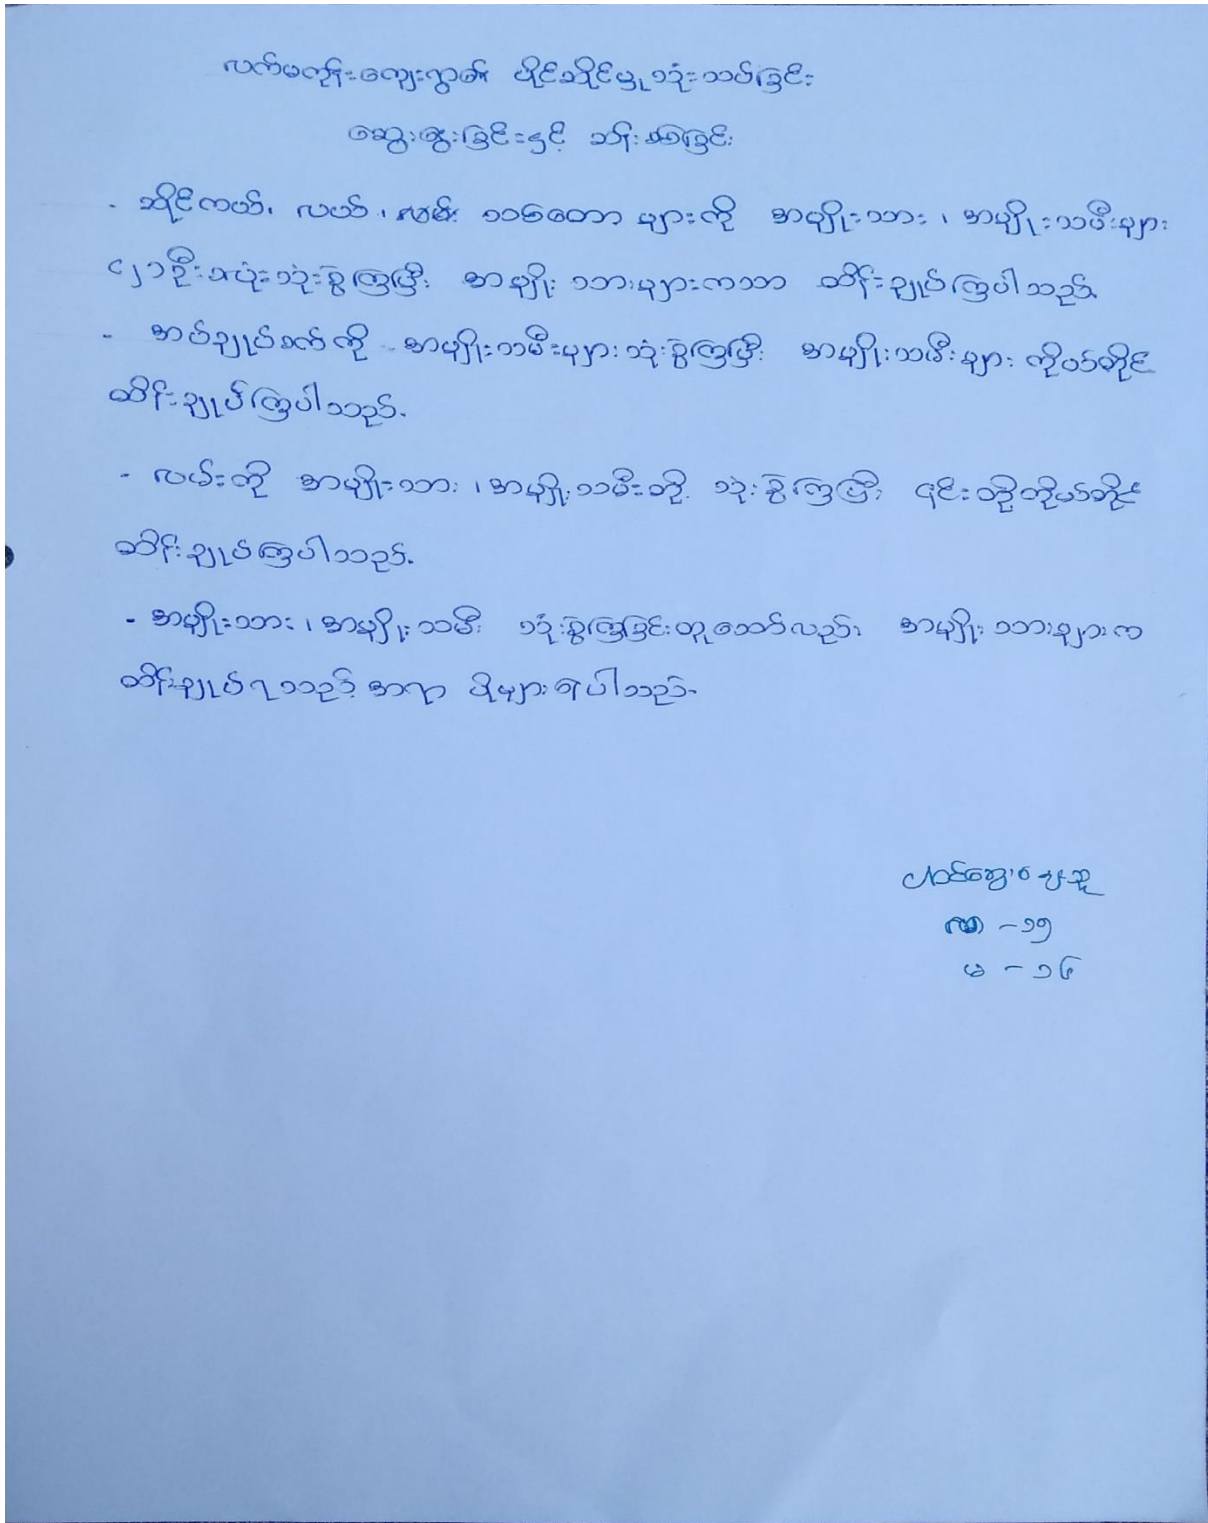 လက်မကုန်းကျေးရွာ၏ ပိုင်ဆိုင်မှု သုံးသပ်ခြင်း
ဆွေးနွေးခြင်းနှင့် ခန်းစစ်ခြင်း
- ဆိုင်ကယ်၊ လယ်၊ သစ်တော များကို အမျိုးသား၊ အမျိုးသမီးများ
၎င်း၂ဦးစလုံးသုံးစွဲကြပြီး အမျိုးသားများကသာ ထိန်းချုပ်ကြပါသည်။
- အပ်ချုပ်စက်ကို အမျိုးသမီးများသုံးစွဲကြပြီး အမျိုးသမီးများ ကိုယ်တိုင်
ထိန်းချုပ်ကြပါသည်။
- လမ်းကို အမျိုးသား၊ အမျိုးသမီးတို့ သုံးစွဲကြပြီး ၎င်းတို့ကိုယ်တိုင်
ထိန်းချုပ်ကြပါသည်။
- အမျိုးသား၊ အမျိုးသမီး သုံးစွဲကြခြင်းတူသော်လည်း အမျိုးသားများက
ထိန်းချုပ်ရသည့်အရာ ပိုများနေပါသည်။
ပါဝင်ဆွေးနွေးသူ
ကျား - ၁၅
မ - ၁၆